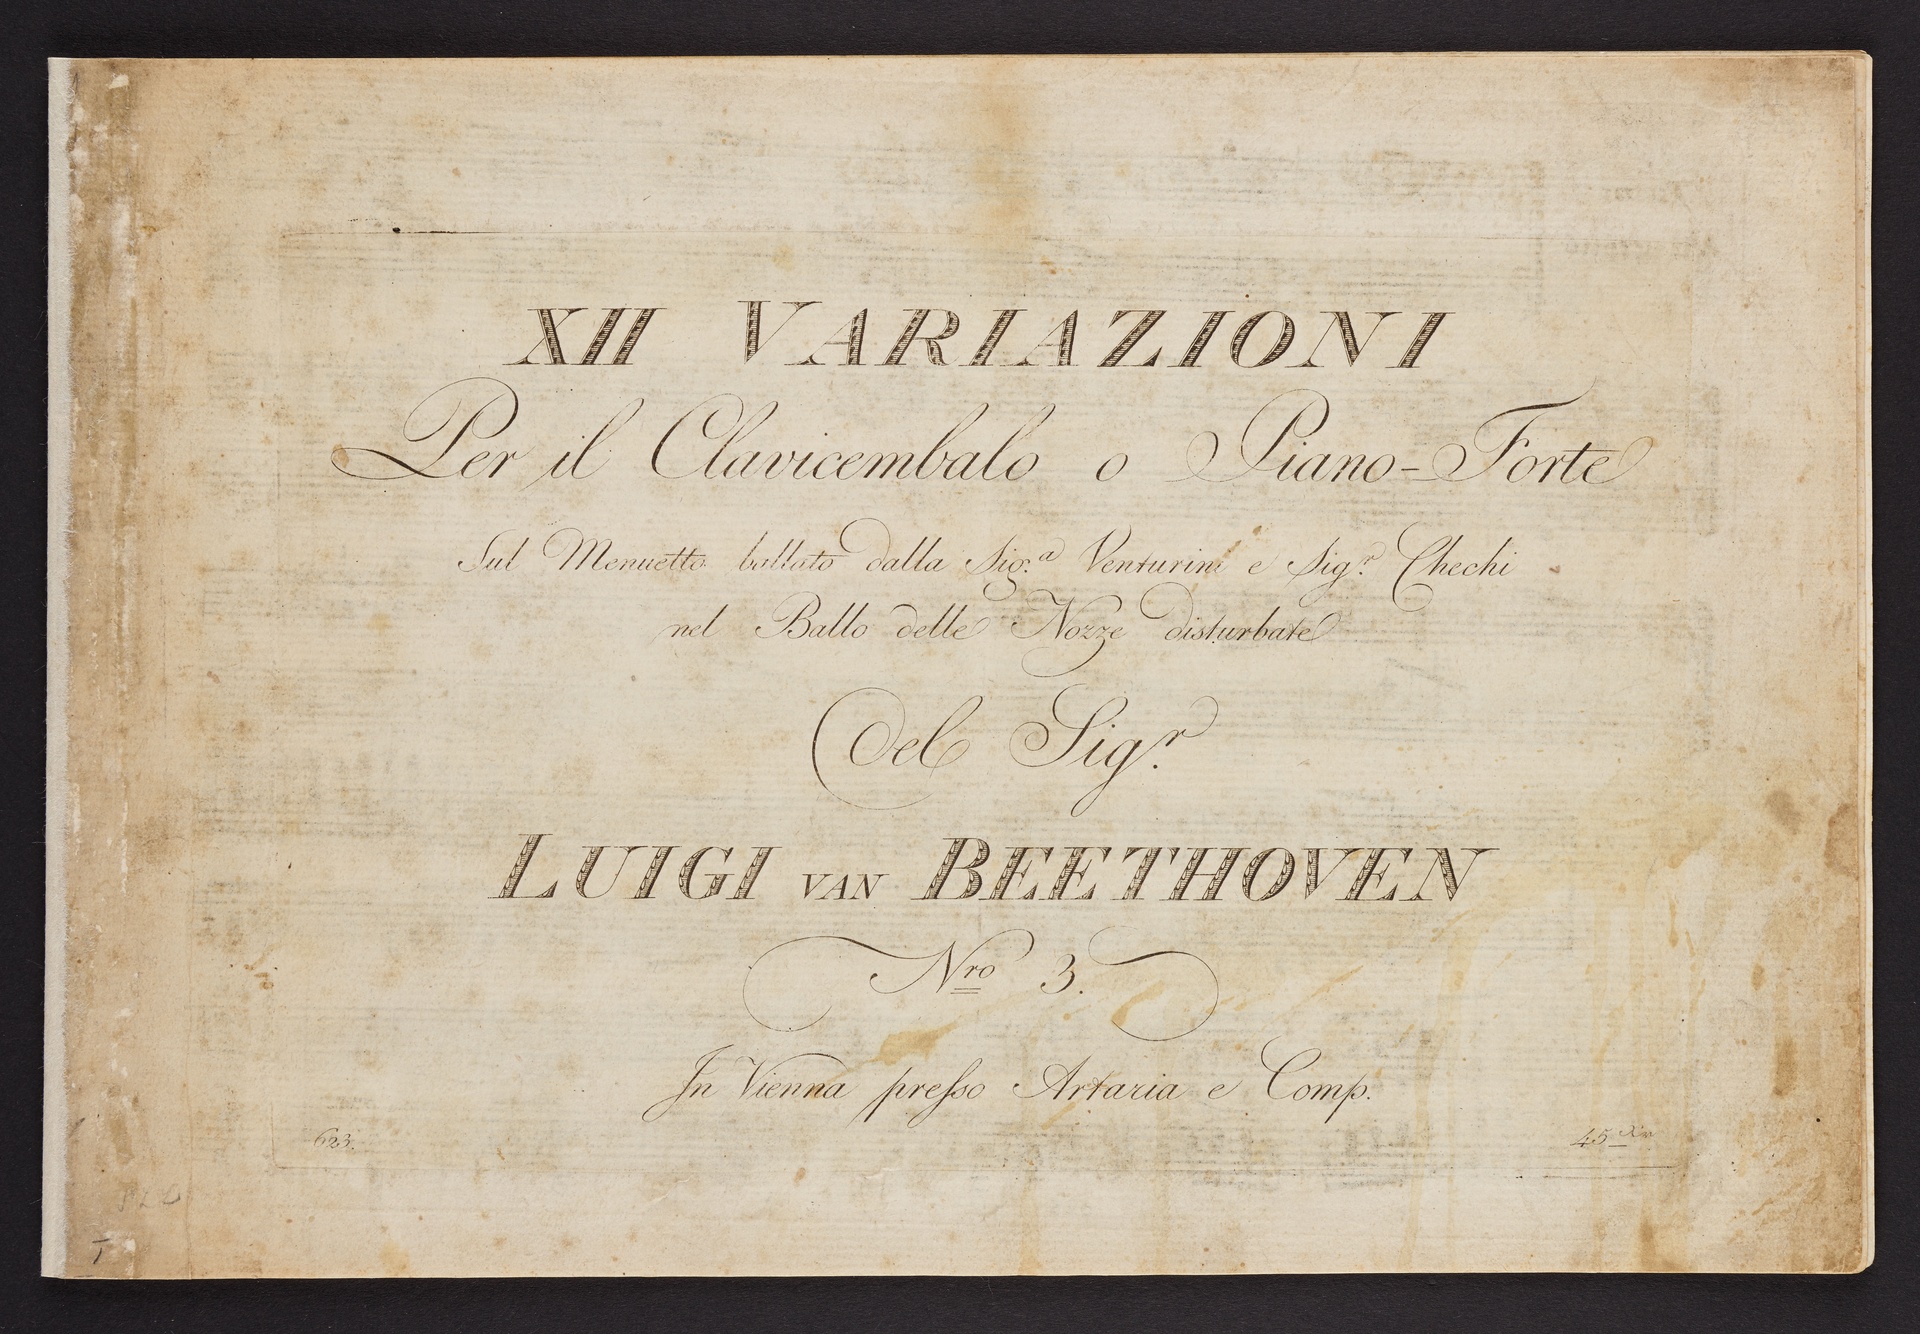 XII VARIAZIONI
Per il Clavicembalo o Piano-Forte
Sul Menuetto ballato dalla Sig.ª Venturini e Sig.r Chechi
nel Ballo delle Nozze disturbate
del Sig.r
LUIGI VAN BEETHOVEN
Nro 3.
In Vienna preſso Artaria e Comp.
623.
45 Xr
T